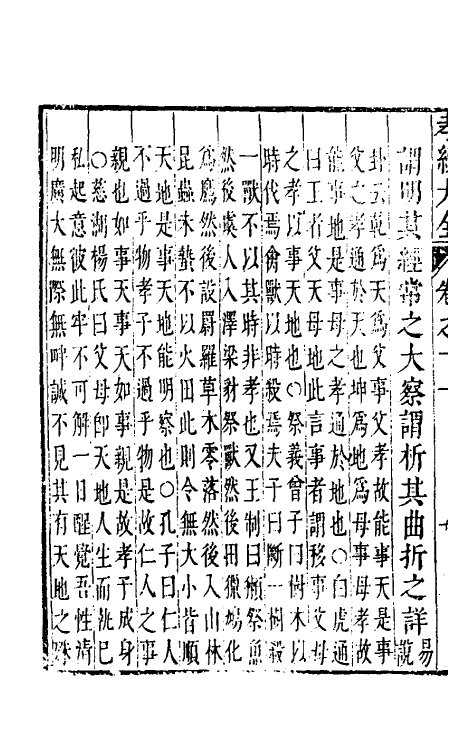 孝經大全 卷之十一 七
謂明其經常之大察謂析其曲折之詳 易說
卦云乾爲天爲父事父孝故能事天是事
父之孝通於天也坤爲地爲母事母孝故
能事地是事母之孝通於地也○白虎通
曰王者父天母地此言事者謂移事父母
之孝以事天地也○祭義曾子曰樹木以
時伐焉禽獸以時殺焉夫子曰斷一樹殺
一獸不以其時非孝也又王制曰獺祭魚
然後虞人入澤梁豺祭獸然後田獵鳩化
爲鷹然後設罻羅草木零落然後入山林
昆蟲未蟄不以火田此則令無大小皆順
天地是事天地能明察也○孔子曰仁人
不過乎物孝子不過乎物是故仁人之事
親也如事天事天如事親是故孝子成身
○慈湖楊氏曰父母卽天地人生而沘已
私起意彼此牢不可解一日醒覺吾性清
明廣大無際無畔誠不見其有天地之殊